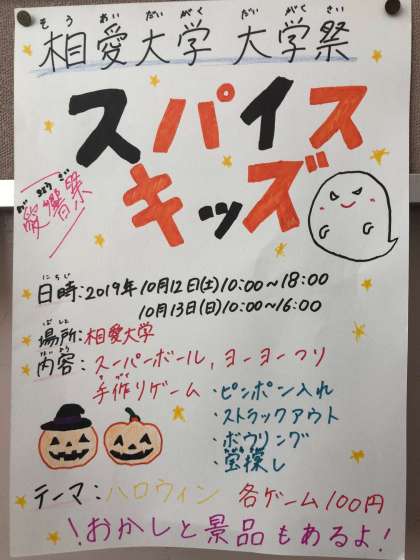 そうあいだいがく だいがくさい
相愛大学 大学祭
スパイス
キッズ
響祭
にちじ
日時：2019年 10月12日(土)10:00~18:00
10月13日(日)10:00~16:00
ばしょ
場所：相愛大学
ないよう
内容：スーパーボール，ヨーヨーつり
手作りゲーム・ピンポン入れ
・ストラックアウト
・ボウリング
・宝探し
テーマ：ハロウィン 各ゲーム100円
！おかしと景品もあるよ！